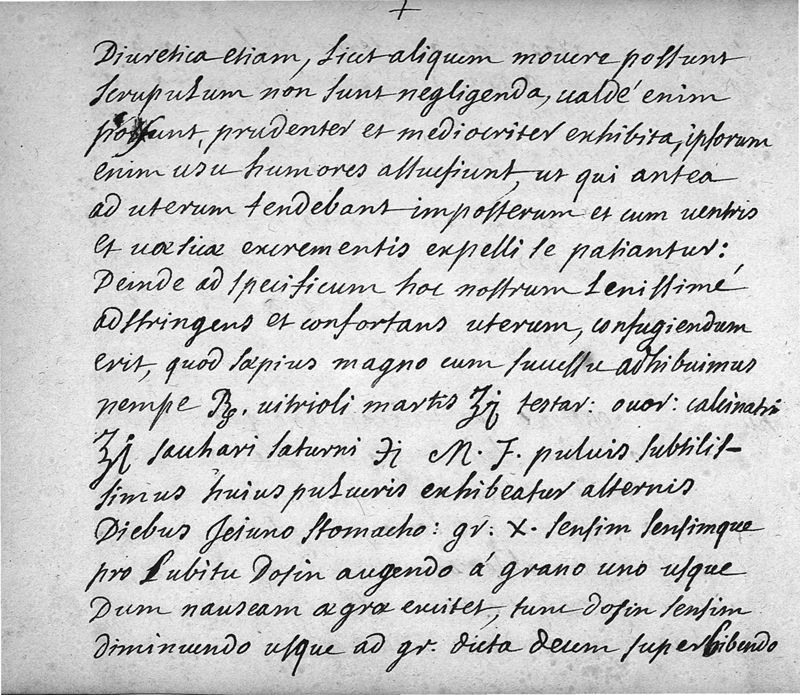 +
Diuretica etiam, licet aliquem movere possunt
scrupulum non sunt negligenda, ualdé enim
possunt, prudenter et mediocriter exhibita, ipsorum
enim usu humores assuesiunt, ut qui antea
ad uterum tendebant imposterum et cum uentris
et uæsicæ excrementis expelli se patiantur:
Deinde ad specificum hoc nostrum Lenissimé
adstringens et confortans uterum, confugiendum
erit, quod sæpius magno cum successu adhibuimus
nempe ℞. uitrioli martis ʒj testar: ouor: calcinatar:
ʒj sacchari saturni ℈j M. F. puluis subtilis-
simus huius pulueris exhibeatur alternis
Diebus Jejuno stomacho: gr: X. sensim sensimque
pro Lubitu Dosin augendo á grano uno usque
Dum nauseam ægræ excitet, tunc dosin sensim
diminuendo usque ad gr. dicta decem superbibendo